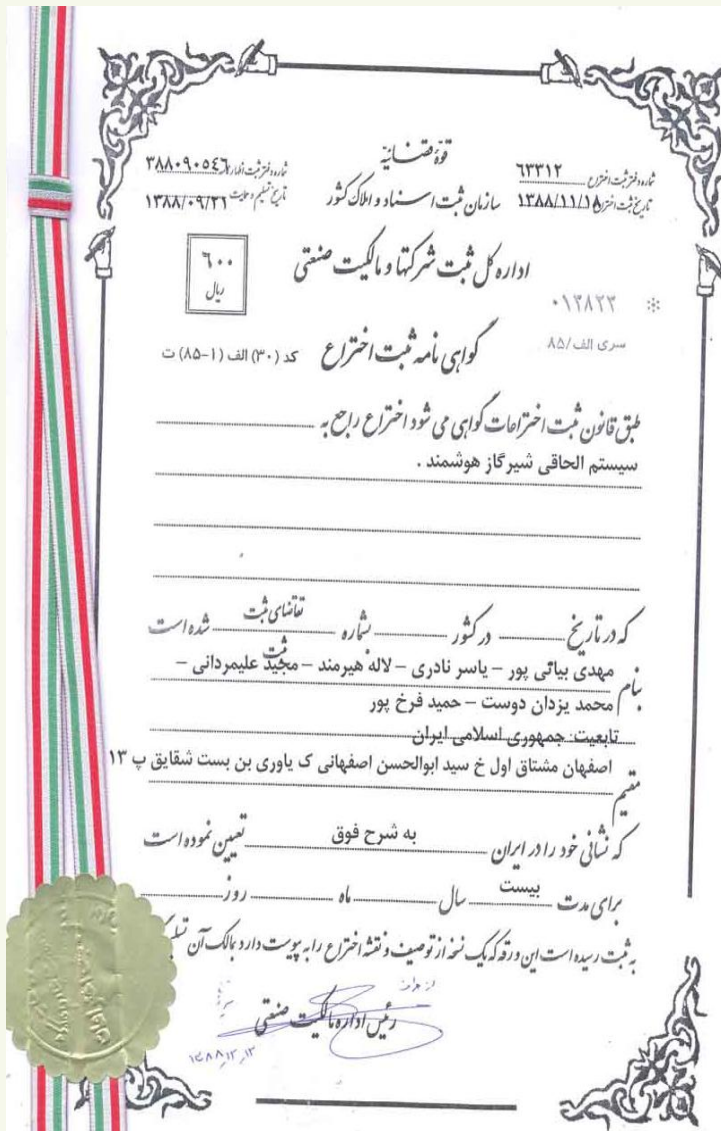 قوهٔ قضائیه
شماره دفتر ثبت اختراع ۶۳۳۱۲
تاریخ ثبت اختراع ۱۳۸۸/۱۱/۱۸
سازمان ثبت اسناد و املاک کشور
شماره دفتر ثبت اظهارنامه ۳۸۸۰۹۰۵۴۶
تاریخ تسلیم و حمایت ۱۳۸۸/۰۹/۲۱
اداره کل ثبت شرکتها و مالکیت صنعتی
۶۰۰
ریال
سری الف/۸۵
گواهی نامه ثبت اختراع
کد (۳۰) الف (۱-۸۵) ت
طبق قانون ثبت اختراعات گواهی می شود اختراع راجع به
سیستم الحاقی شیر گاز هوشمند .
که در تاریخ در کشور بشماره تقاضای ثبت ثبت شده است
بنام مهدی بیاتی پور – یاسر نادری – لاله هیرمند – مجید علیمردانی –
محمد یزدان دوست – حمید فرخ پور
تابعیت: جمهوری اسلامی ایران
مقیم اصفهان مشتاق اول خ سید ابوالحسن اصفهانی ک یاوری بن بست شقایق پ ۱۳
که نشانی خود را در ایران به شرح فوق تعیین نموده است
برای مدت بیست سال ماه روز
به ثبت رسیده است این ورقه که یک نسخه از توصیف و نقشه اختراع را به پیوست دارد بمالک آن
رئیس اداره مالکیت صنعتی